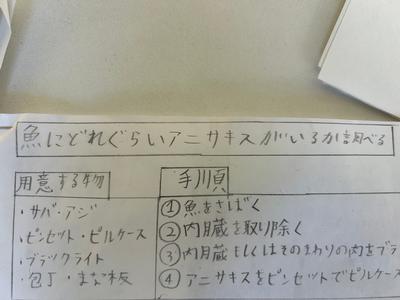 魚にどれぐらいアニサキスがいるか調べる
用意する物
・サバ・アジ
・ピンセット・ピルケース
・ブラックライト
・包丁・まな板
手順
①魚をさばく
②内臓を取り除く
③内臓もしくはそのまわりの肉をブラ
④アニサキスをピンセットでピルケース